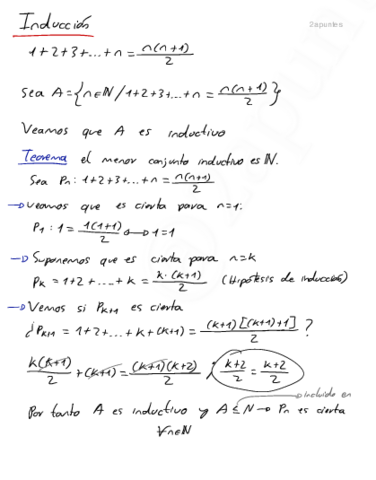 Inducción
2apuntes
1+2+3+...+n = n(n+1)/2
Sea A={n∈ℕ/1+2+3+...+n = n(n+1)/2}
Veamos que A es inductivo
Teorema el menor conjunto inductivo es ℕ.
Sea Pn: 1+2+3+...+n = n(n+1)/2
→ Veamos que es cierta para n=1:
P1: 1 = 1(1+1)/2 → 1=1
→ Suponemos que es cierta para n=k
Pk = 1+2+...+k = k·(k+1)/2 (Hipótesis de inducción)
→ Vemos si Pk+1 es cierta
¿Pk+1 = 1+2+...+k+(k+1) = (k+1)[(k+1)+1]/2 ?
k(k+1)/2 + (k+1) = (k+1)(k+2)/2 ; k+2/2 = k+2/2
incluido en
Por tanto A es inductivo y A ⊆ N → Pn es cierta
∀n∈N